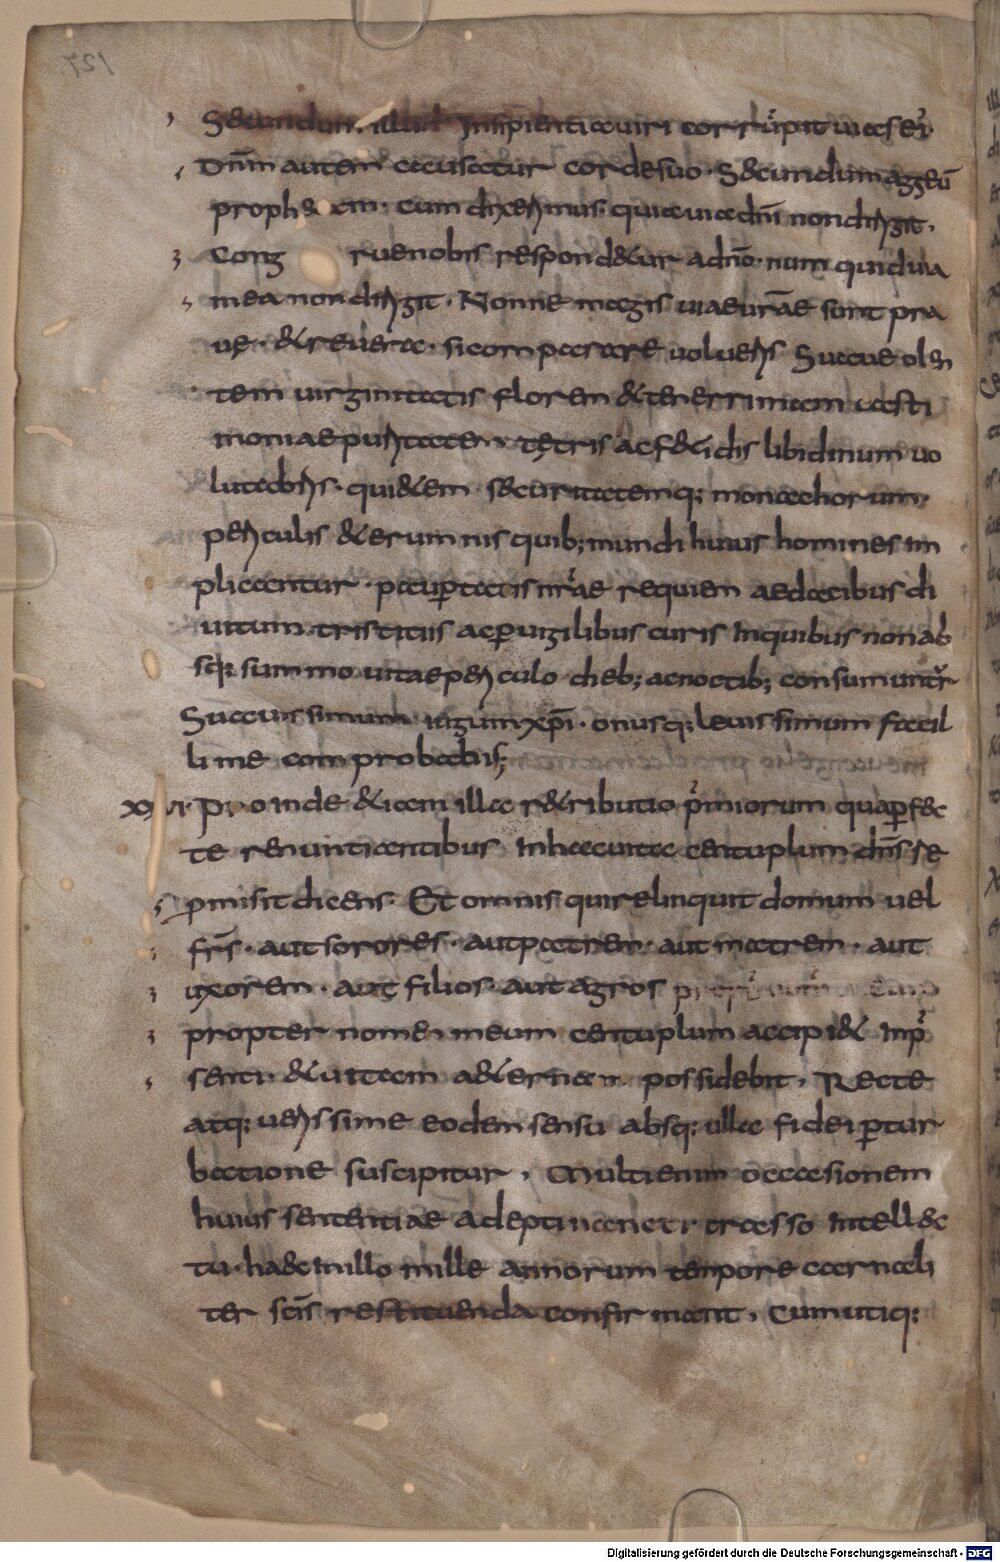 Secundum illud Insipientia uiri corrūpit uias eiꝰ
Dn̄m autem accusatur corde suo. Secundum aggeū
prophetam. cum dixerimus. quia uia dn̄i non dirigit.
Cong ruenobis respondetur adn̄o. num quid uia
mea non dirigit. Nonne magis uiae ur̄ae sunt pra
uę. Et reuera. si comparare uolueris Suaue olen
tem uirginitatis florem et tenerrimam casti
moniae puritatem tętris ac fetidis libidinum uo
lutabris. quietem securitatemq; monachorum.
periculis et erumnis quib; mundi huius homines im
plicantur. paupertatis nr̄ae requiem aedacibus di
uitum tristitiis ac ꝑuigilibus curis Inquibus non ab
sq; summo uitae periculo dieb; ac noctib; consumuntr̄
Suauissimum iugum xp̄i. onusq; leuissimum facil
lime comprobabis;
XXVI. Proinde etiam illa retributio p̄miorum qua ꝑfec
te renuntiantibus Inhac uita centuplum dn̄s se
ꝓmisit dicens. Et omnis qui relinquit domum uel
fr̄s. aut sorores. aut patrem. aut matrem. aut
uxorem. aut filios. aut agros
propter nomen meum centuplum accipiet Inp̄
senti. et uitam aeternam possidebit. Recte
atq; uerissime eodem sensu absq; ulla fidei ꝑtur
batione suscipitur. Multi enim occasionem
huius sententiae adepti crasso Intellec
tu. haec In illo mille annorum tempore carnali
ter sc̄is restituenda confirmant. Cum utiq;
Digitalisierung gefördert durch die Deutsche Forschungsgemeinschaft - DFG